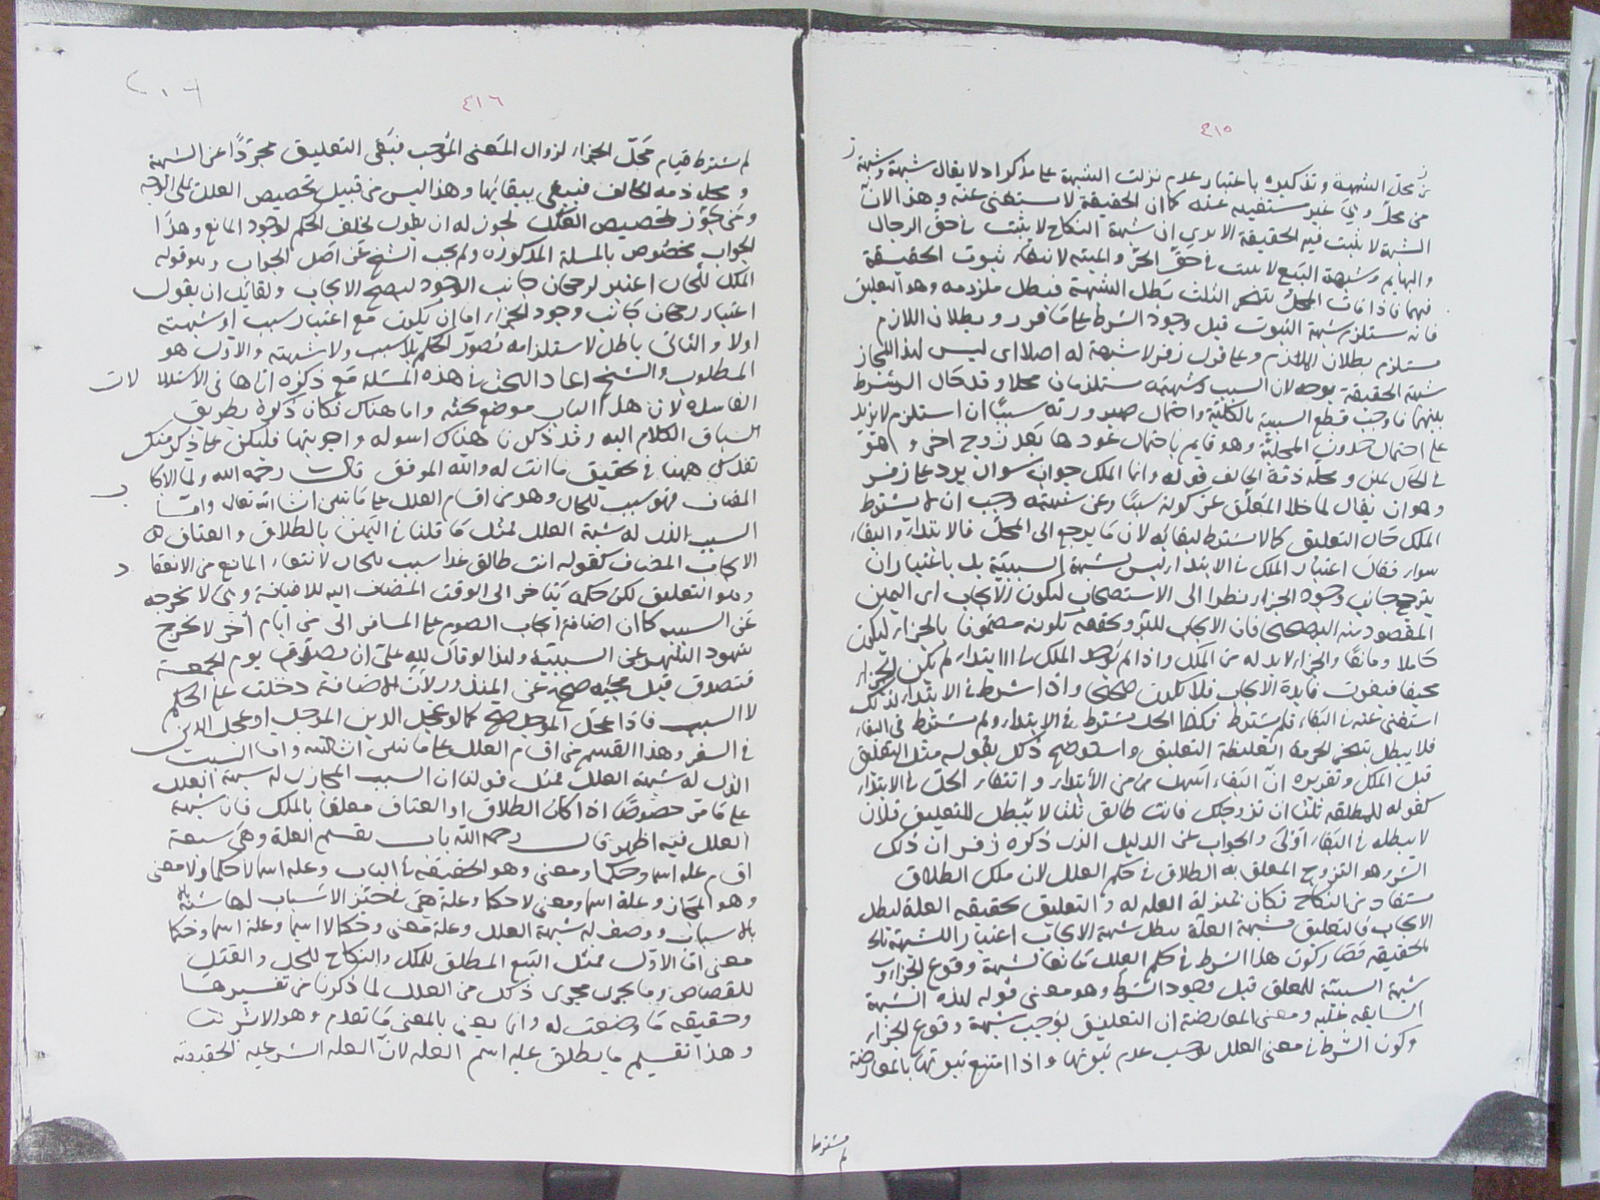 ٤١٥
من محل الشبهة وتذكيره باعتبار عدم نزلت الشبهة على مذكر اذ لا يقال شبهة وشبهة
من محل وهي غير مستغنية عنه كما ان الحقيقة لا تستغنى عنه وهذا لان
الشبهة لا تثبت فيه الحقيقة الا يرى ان شبهة النكاح لا تثبت في حق الرجال
والبهايم وشبهة البيع لا تثبت في حق الحر والميتة لانتفاء ثبوت الحقيقة
فيهما فاذا فات المحل بتنجيز الثلث بطل الشبهة فبطل ملزومه وهو التعليق
فانه يستلزم شبهة الثبوت قبل وجود الشرط على ما قرر وبطلان اللازم
يستلزم بطلان الملزوم وعلى قول زفر لا شبهة له اصلا اى ليس لهذا المجاز
شبهة الحقيقة بوجه لان السبب وشبهته يستلزمان محلا وقد حال الشرط
بينهما فاوجب قطع السببية بالكلية واحتمال صيرورته سببا ان استلزم لا يزيد
على احتمال حدوث المحلية وهو قايم باحتمال عودها بعد زوج اخر وهو
في الحال يمين ومحله ذمة الحالف قوله وانما الملك جواب سوال يرد على زفر
وهو ان يقال لما خلا المعلق عن كونه سببا وعن شبهته وجب ان لا يشترط
الملك حال التعليق كما لا يشترط لبقائه لان ما يرجع الى المحل فالابتداء والبقاء
سواء فقال اعتبار الملك في الابتداء ليس لشبهة السببية بل باعتبار ان
يترجح جانب وجود الجزاء نظرا الى الاستصحاب ليكون الايجاب اى اليمين
المقصود منه البر صحيحا فان الايجاب للبر وتحققه بكونه مضمونا بالجزاء ليكون
حاملا ومانعا والجزاء لا بد له من الملك واذا لم يوجد الملك في الابتداء لم يكن الجزاء
مخيفا فيفوت فايدة الايجاب فلا يكون صحيحا واذا اشترط في الابتداء لذلك
استغنى عنه في البقاء فلم يشترط فكذا الحل يشترط في الابتداء ولم يشترط في البقاء
فلا يبطل بتنجيز الحرمة الغليظة التعليق واستوضح ذلك بقوله مثل التعليق
قبل الملك وتقريره ان البقاء اسهل من الابتداء وانتفاء الحل في الابتداء
كقوله للمطلقة ثلثا ان تزوجتك فانت طالق ثلثا لا يبطل التعليق فلان
لا يبطله في البقاء اولى والجواب عن الدليل الذى ذكره زفر ان ذلك
الشرط هو التزوج المعلق به الطلاق في حكم العلل لان ملك الطلاق
مستفاد من النكاح فكان بمنزلة العلة له والتعليق بحقيقة العلة يبطل
الايجاب فالتعليق بشبهة العلة يبطل شبهة الايجاب اعتبارا للشبهة بال
حقيقة فصار كون هذا الشرط في حكم العلل مانعا لشبهة وقوع الجزاء و
شبهة السببية للمعلق قبل وجود الشرط وهو معنى قوله لهذه الشبهة
السابقة عليه ومعنى المعارضة ان التعليق يوجب شبهة وقوع الجزاء
وكون الشرط في معنى العلل يوجب عدم ثبوتها واذا امتنع ثبوتها بالمعارضة
لم يشترط
٤١٦
لم يشترط قيام محل الجزاء لزوال المعنى الموجب فيبقى التعليق مجردا عن الشبهة
ومحله ذمة الحالف فيبقى ببقائها وهذا ليس من قبيل تخصيص العلل على الوجه
ومن يجوز تخصيص العلل يجوز له ان يقول تخلف الحكم لوجود المانع وهذا
الجواب مخصوص بالمسلة المذكورة ولم يجب الشيخ عن اصل الجواب وهو قوله
الملك للحال اعتبر لرجحان جانب الوجود ليصح الايجاب ولقائل ان يقول
اعتبار رجحان جانب وجود الجزاء اما ان يكون مع اعتبار سبب او شبهته
اولا والثانى باطل لاستلزامه تصور الحكم بلا سبب ولا شبهته والاول هو
المطلوب والشيخ اعاد البحث في هذه المسئلة مع ذكره اياها في الاستدلالات
الفاسدة لان هذا الباب موضع بحثه واما هناك فكان ذكره بطريق
انسياق الكلام اليه وقد ذكرنا هناك اسولة واجوبتها فليكن على ذكر منك
قال رحمه الله واما الايجاب
المضاف فهو سبب للحال وهو من اقسام العلل على ما نبين ان شاء الله تعالى واما
السبب الذى له شبهة العلل فمثل ما قلنا في اليمين بالطلاق والعتاق
الايجاب المضاف كقوله انت طالق غدا سبب للحال لانتفاء المانع من الانعقاد
وهو التعليق لكن حكمه يتاخر الى الوقت المضاف اليه للاضافة وهى لا تخرجه
عن السببية كما ان اضافة ايجاب الصوم على المسافر الى من ايام اخر لا تخرج
شهود الشهر عن السببية ولهذا لو قال لله على ان يتصدق يوم الجمعة
فتصدق قبل مجيئه صح عن المنذور لان الاضافة دخلت على الحكم
لا السبب فاذا عجل المؤجل صح كما لو عجل الدين المؤجل او عجل الدين
في السفر وهذا القسم من اقسام العلل على ما نبين ان شاء الله واما السبب
الذى له شبهة العلل فمثل قولنا ان السبب المجازى له شبهة العلل
على ما مر خصوصا اذا كان الطلاق او العتاق معلقا بالملك فان شبهة
العلل فيه اظهر قال رحمه الله باب تقسيم العلة وهى سبعة
اقسام علة اسما وحكما ومعنى وهو الحقيقة في الباب وعلة اسما لا حكما ولا معنى
وهو المجاز وعلة اسما ومعنى لا حكما وعلة هى في حيز الاسباب لها شبهة
بالاسباب ووصف له شبهة العلل وعلة معنى وحكما لا اسما وعلة اسما وحكما لا
معنى اما الاول فمثل البيع المطلق للملك والنكاح للحل والقتل
للقصاص وما يجرى مجرى ذلك من العلل لما ذكرنا من تفسيرها
وحقيقة ما وضعت له وانا يعنى بالمعنى ما تقدم وهو الاثر
وهذا تقسيم ما يطلق عليه اسم العلة لان العلة الشرعية الحقيقية